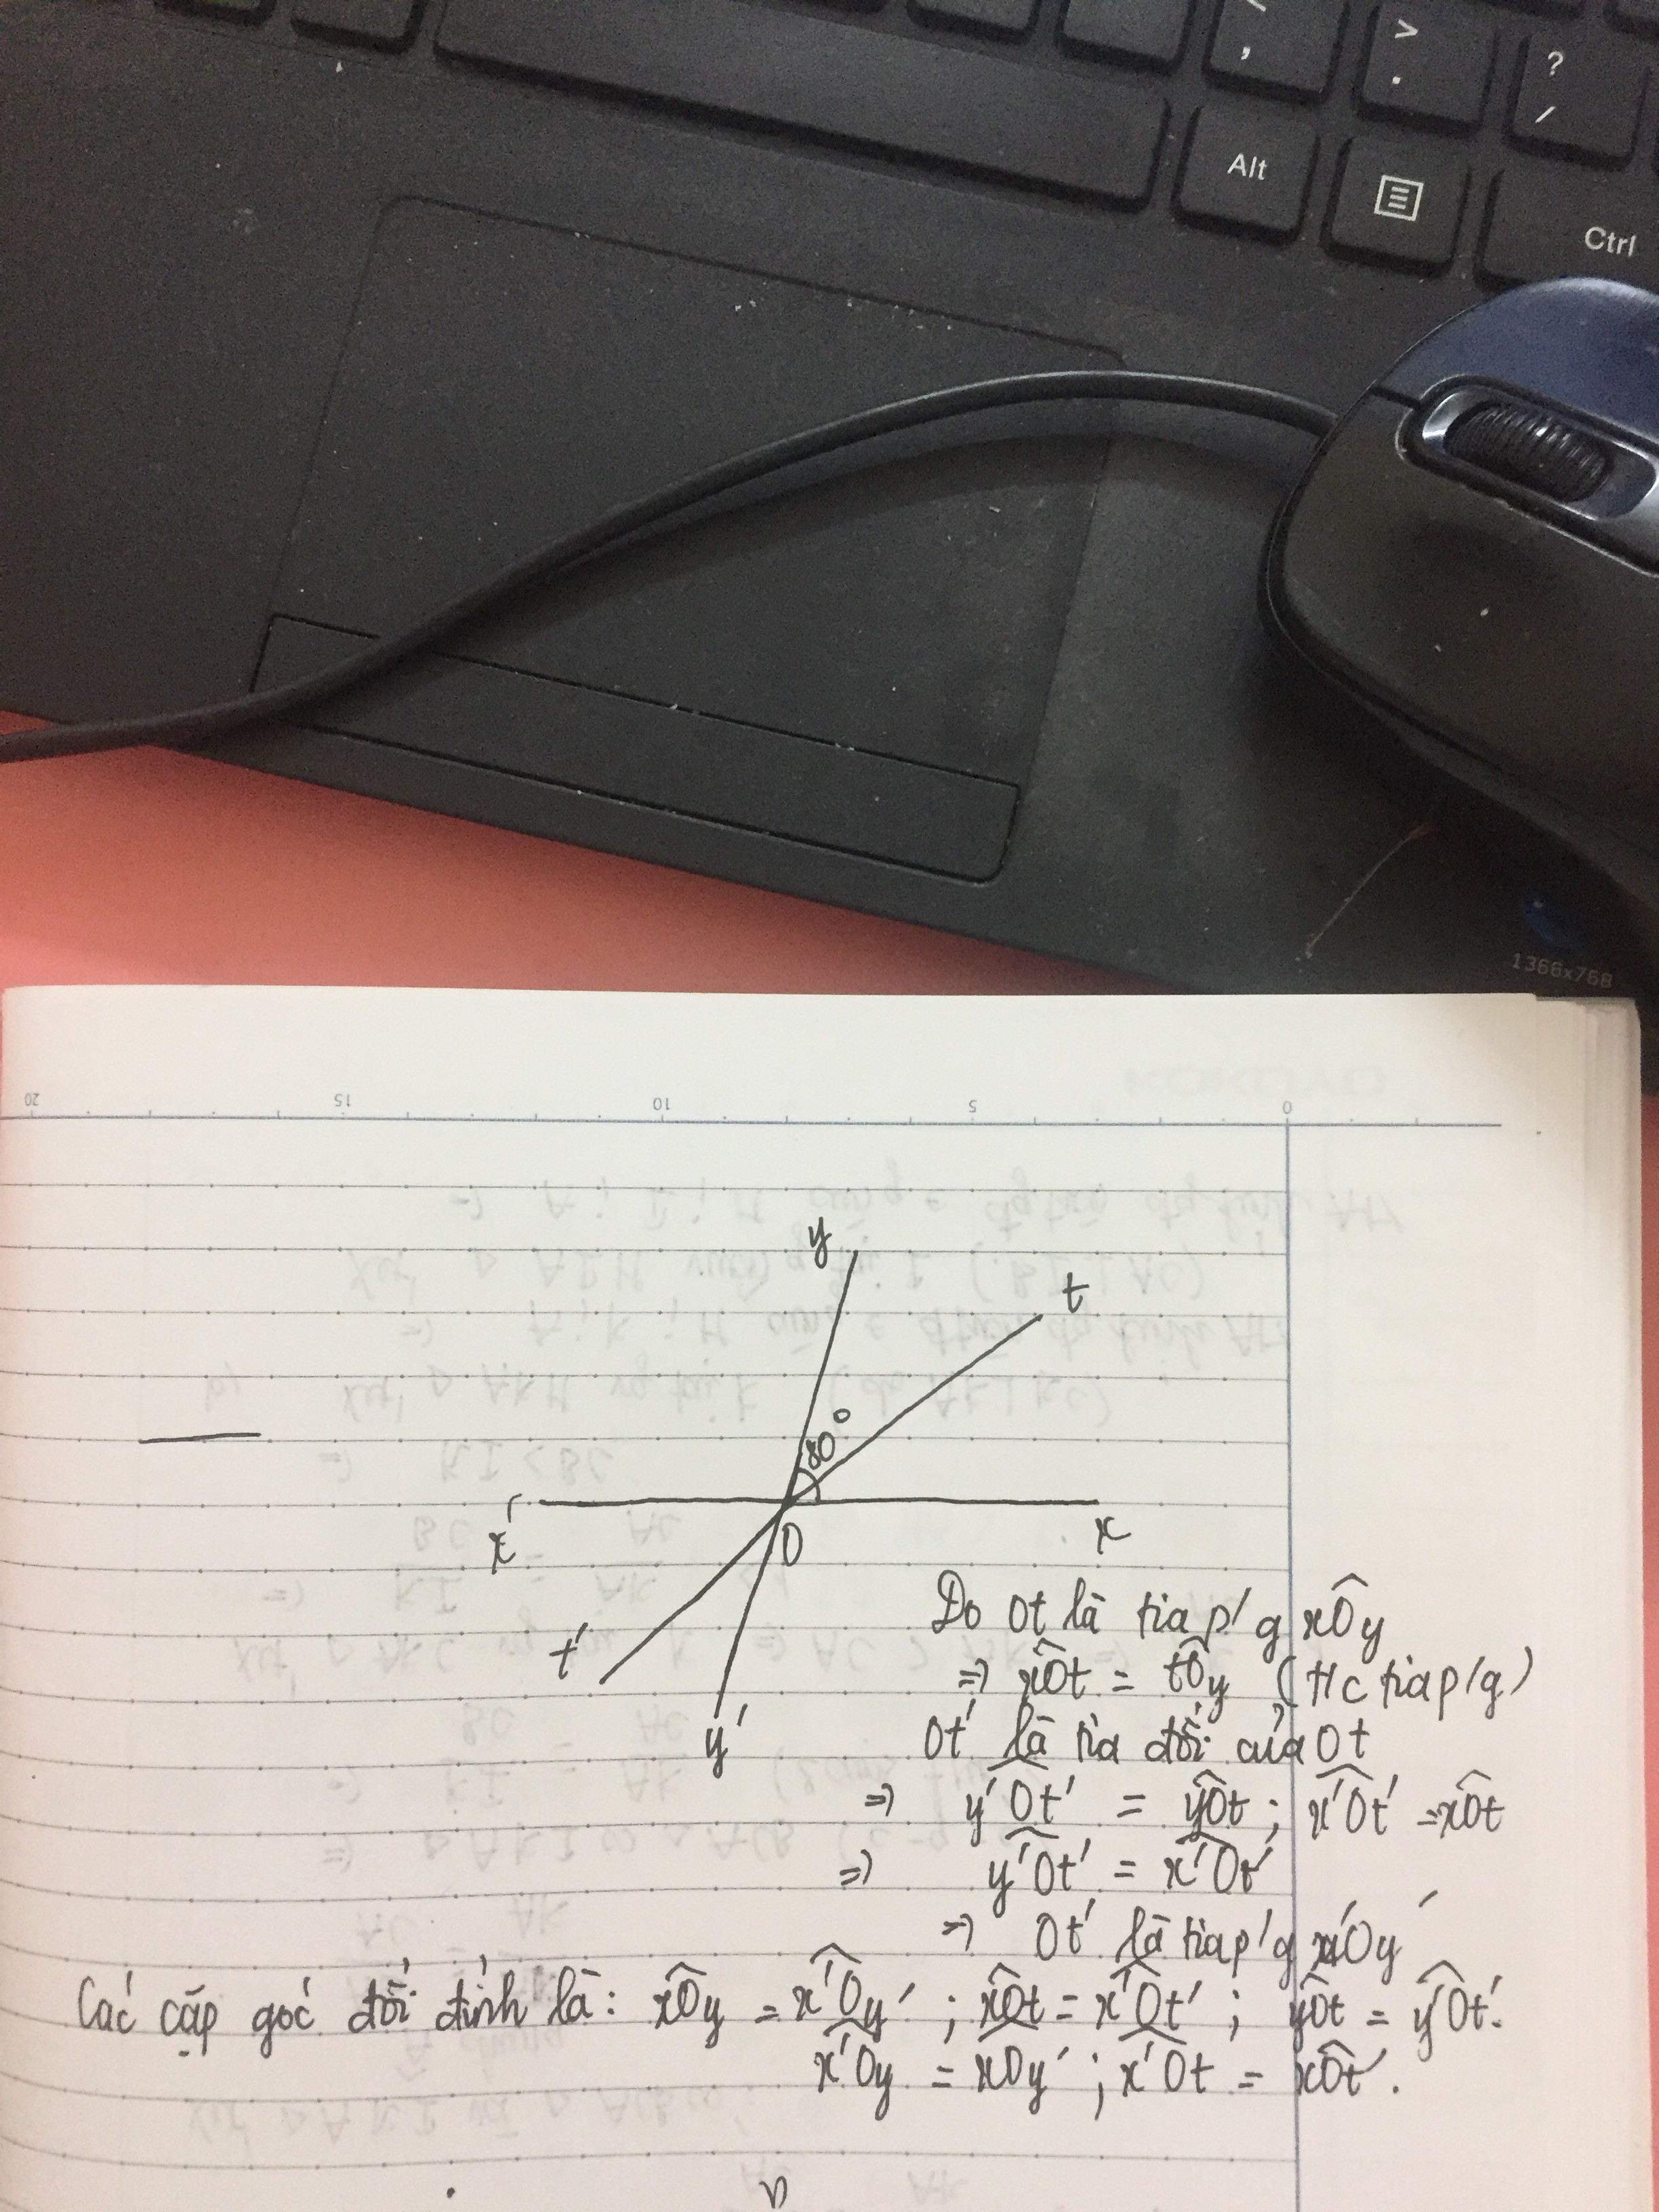 < ,
> .
? /
Alt
Ctrl
1366x768
KOKUYO
20 15 10 5 0
y
t
80°
x'
O
x
t'
y'
Do Ot là tia p/g xÔy
=> xÔt = tÔy (t/c tia p/g)
Ot' là tia đối của Ot
=> y'Ôt' = yÔt ; x'Ôt' = xÔt
=> y'Ôt' = x'Ôt'
=> Ot' là tia p/g x'Oy'
Các cặp góc đối đỉnh là: xÔy = x'Ôy' ; xÔt = x'Ôt' ; yÔt = y'Ôt'.
x'Ôy = xÔy' ; x'Ôt = xÔt'.